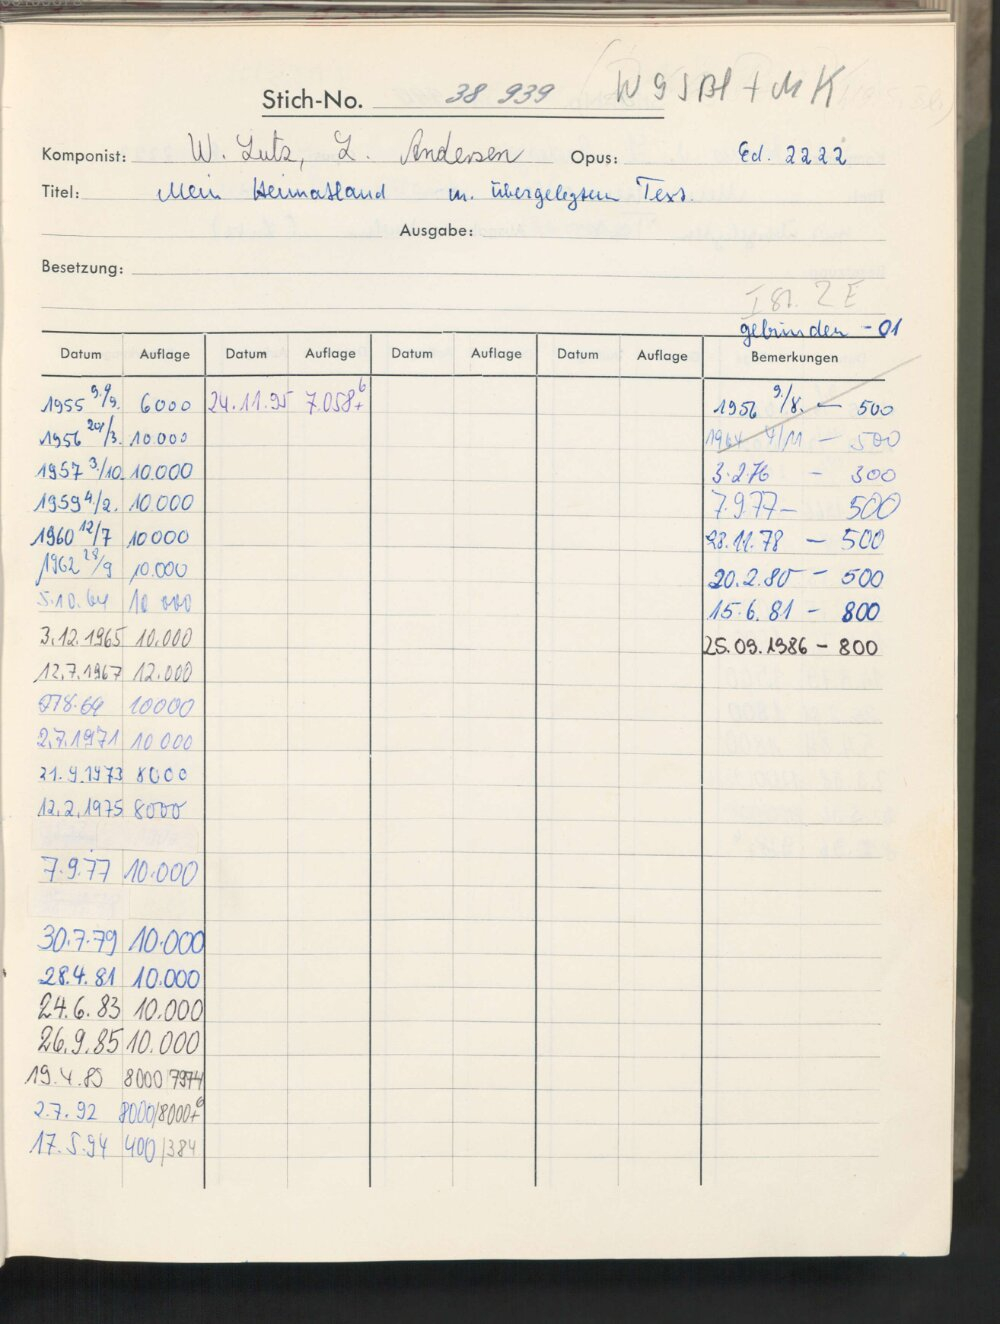 Stich-No. 38 939
W 9 SBl + M K
Komponist: W. Lutz, L. Andersen Opus: Ed. 2222
Titel: Mein Heimatland m. übergelegtem Text.
Ausgabe:
Besetzung:
I St. 2 E
gebunden - 01
Datum Auflage Datum Auflage Datum Auflage Datum Auflage Bemerkungen
1955 9./9. 6000 24.11.95 7.058+6 1956 9./8. - 500
1956 20/3. 10.000 1964 4/11 - 500
1957 3/10. 10.000 3.2.76 - 300
1959 4/2. 10.000 7.9.77 - 500
1960 12/7 10000 28.11.78 - 500
1962 28/9 10.000 20.2.80 - 500
5.10.64 10 000 15.6.81 - 800
3.12.1965 10.000 25.09.1986 - 800
12.7.1967 12.000
10000
2.7.1971 10 000
21.9.1973 8000
12.2.1975 8000
7.9.77 10.000
30.7.79 10.000
28.4.81 10.000
24.6.83 10.000
26.9.85 10.000
19.4.89 8000/7974
2.7.92 8000/8000+6
17.5.94 400/384